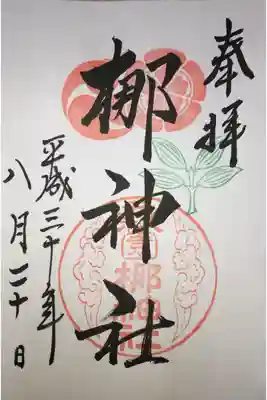 奉拝
梛神社
平成三十年
八月二十日
梛神社